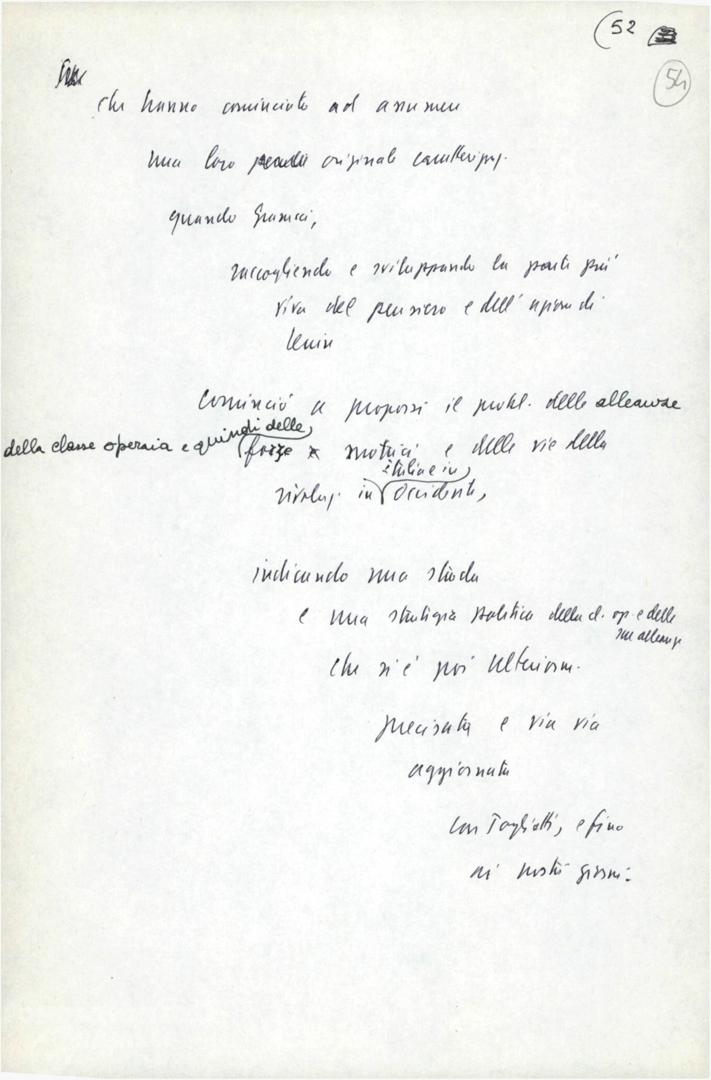 (52
54
che hanno cominciato ad assumere
una loro originale caratterizz.
quando Gramsci,
raccogliendo e sviluppando la parte più
viva del pensiero e dell'azione di
Lenin
cominciò a proporsi il probl. delle alleanze
della classe operaia e quindi delle
forze motrici e delle vie della
italia e in
rivoluz. in Occidente,
indicando una strada
e una strategia politica della cl. op. e delle
sue alleanze
che si è poi ulteriorm.
precisata e via via
aggiornata
con Togliatti, e fino
ai nostri giorni.